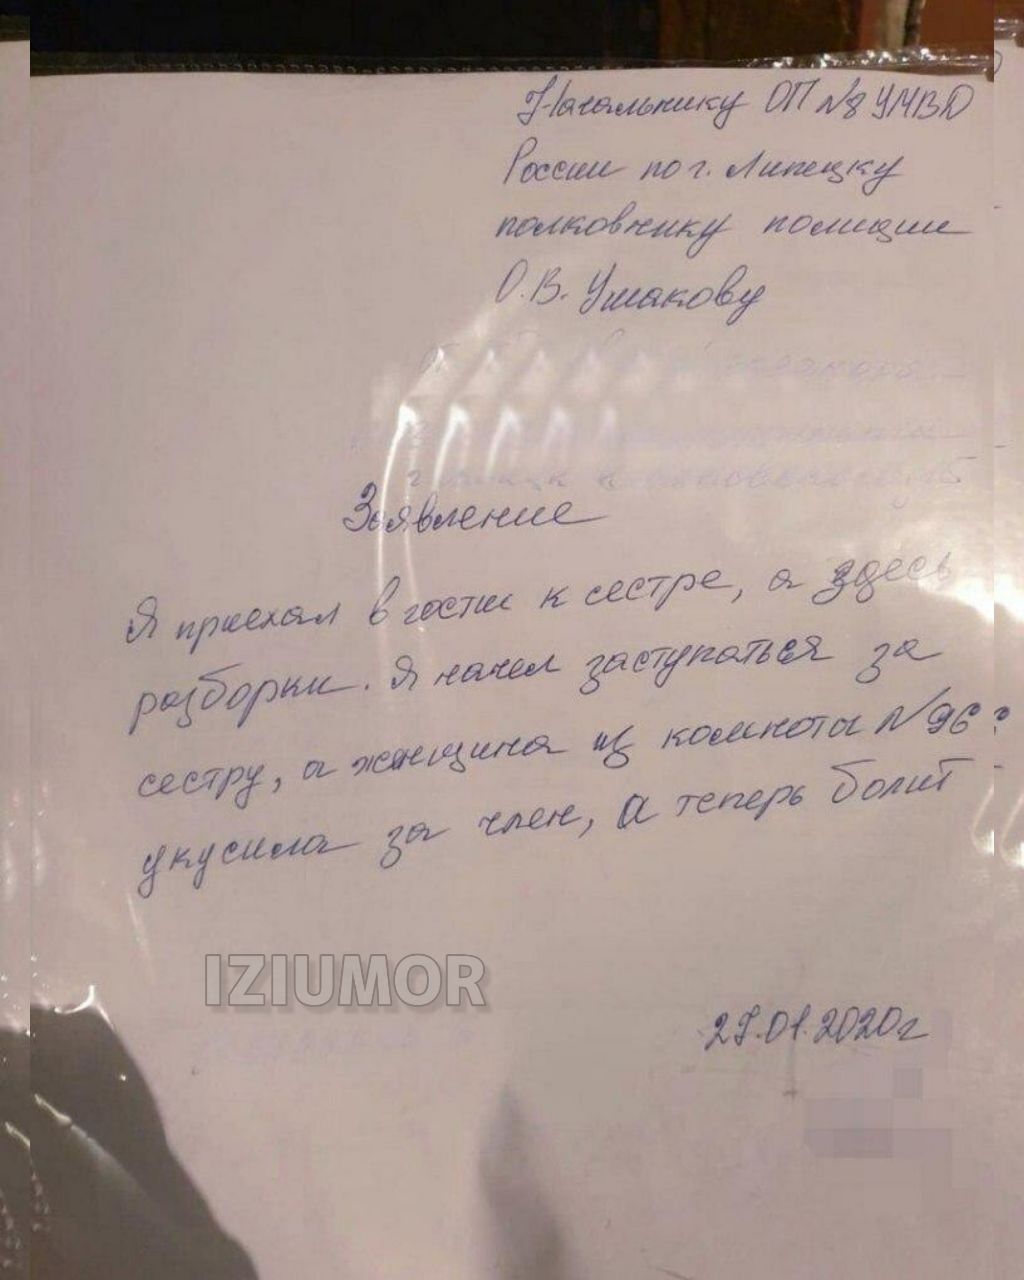 Начальнику ОП №8 УМВД
России по г. Липецку
полковнику полиции
О.В. Ушакову
Заявление
Я приехал в гости к сестре, а здесь
разборки. Я начел заступаться за
сестру, а женщина из комноты №96
укусила за член, а теперь болит
IZIUMOR
27.01.2020г